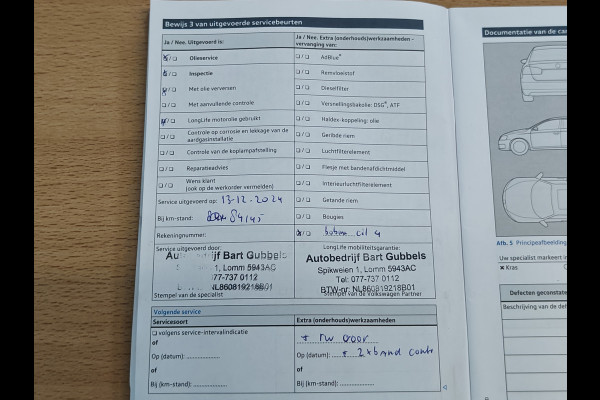 Bewijs 3 van uitgevoerde servicebeurten
Ja / Nee. Uitgevoerd is:
Olieservice
Inspectie
Met olie verversen
Met aanvullende controle
LongLife motorolie gebruikt
Controle op corrosie en lekkage van de
aardgasinstallatie
Controle van de koplampafstelling
Reparatieadvies
Wens klant
(ook op de werkorder vermelden)
Service uitgevoerd op: 13-12-2024
Bij km-stand:
Rekeningnummer:
Service uitgevoerd door:
Autobedrijf Bart Gubbels
1, Lomm 5943AC
077-737 0112
NL860819218B01
Stempel van de specialist
Ja / Nee. Extra (onderhouds)werkzaamheden -
vervanging van:
AdBlue®
Remvloeistof
Dieselfilter
Versnellingsbakolie: DSG®, ATF
Haldex-koppeling: olie
Geribde riem
Luchtfilterelement
Flesje met bandenafdichtmiddel
Interieurluchtfilterelement
Getande riem
Bougies
LongLife mobiliteitsgarantie:
Autobedrijf Bart Gubbels
Spikweien 1, Lomm 5943AC
Tel: 077-737 0112
BTW-nr: NL860819218B01
Stempel van de Volkswagen Partner
Volgende service
Servicesoort
volgens service-intervalindicatie
of
Op (datum):
of
Bij (km-stand):
Extra (onderhouds)werkzaamheden
of
Op (datum): 2x band contr
of
Bij (km-stand):
Documentatie van de car
Afb. 5 Principeafbeelding
Uw specialist markeert i
Kras
Defecten geconstate
Beschrijving van de def